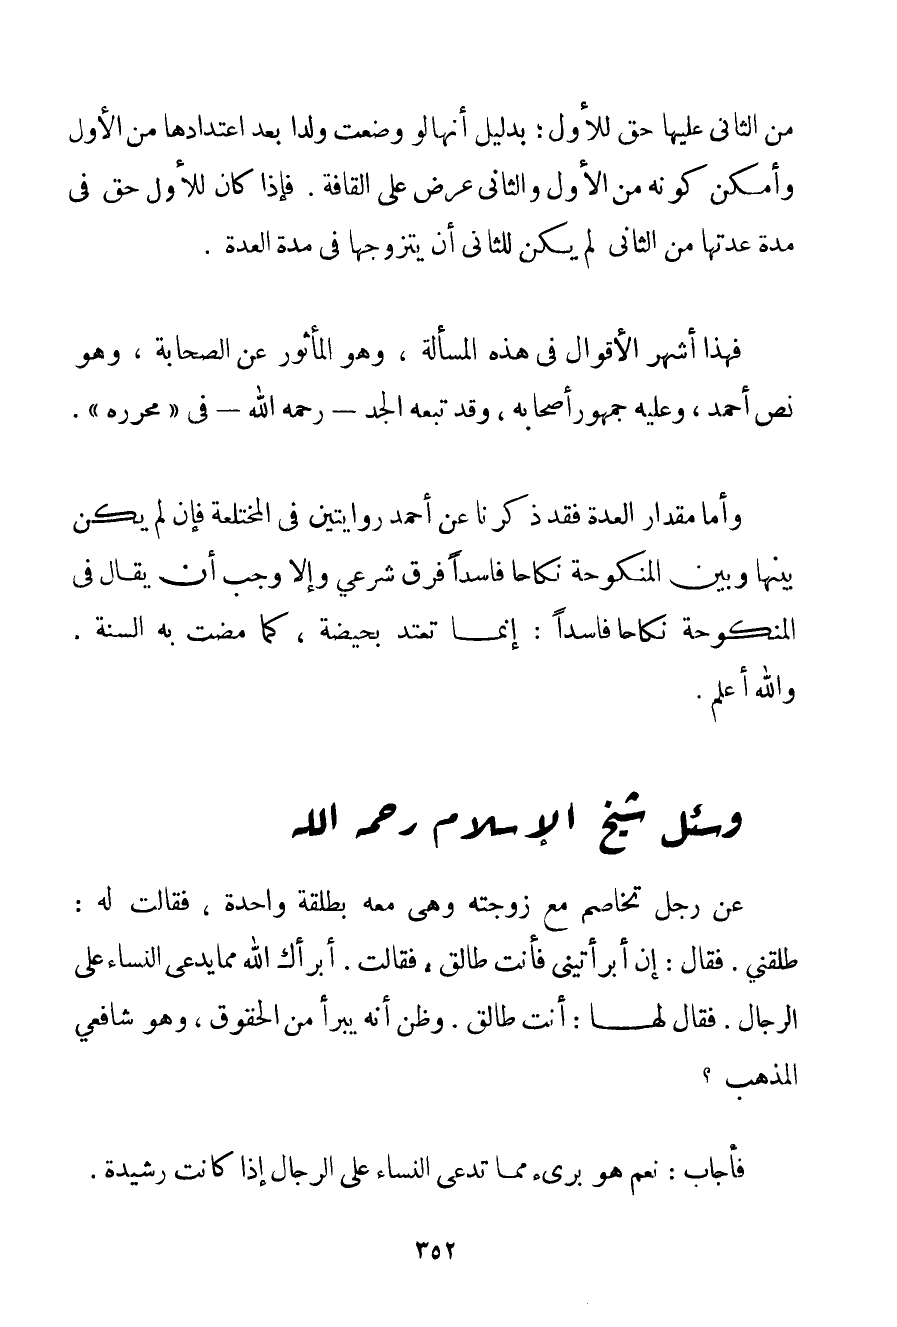 من الثانى عليها حق للأول : بدليل أنها لو وضعت ولدا بعد اعتدادها من الأول
وأمكن كونه من الأول والثانى عرض على القافة . فإذا كان للأول حق فى
مدة عدتها من الثانى لم يكن للثانى أن يتزوجها فى مدة العدة .
فهذا أشهر الأقوال فى هذه المسألة ، وهو المأثور عن الصحابة ، وهو
نص أحمد ، وعليه جمهور أصحابه ، وقد تبعه الجد – رحمه الله – فى « محرره » .
وأما مقدار العدة فقد ذكرنا عن أحمد روايتين فى المختلعة فإن لم يكن
بينها وبين المنكوحة نكاحا فاسداً فرق شرعي وإلا وجب أن يقال فى
المنكوحة نكاحا فاسداً : إنما تعتد بحيضة ، كما مضت به السنة .
والله أعلم .
وسئل شيخ الإسلام رحمه الله
عن رجل تخاصم مع زوجته وهى معه بطلقة واحدة ، فقالت له :
طلقني . فقال : إن أبرأتينى فأنت طالق ، فقالت . أبرأك الله مما يدعى النساء على
الرجال . فقال لها : أنت طالق . وظن أنه يبرأ من الحقوق ، وهو شافعي
المذهب ؟
فأجاب : نعم هو برىء مما تدعى النساء على الرجال إذا كانت رشيدة .
٣٥٢